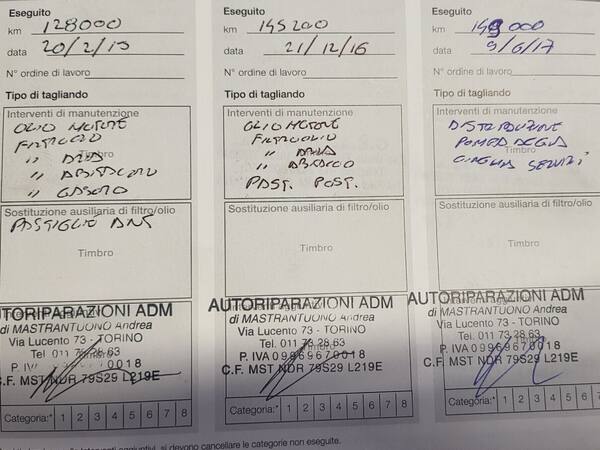 Eseguito
km 128000
data 20/2/15
N° ordine di lavoro
Tipo di tagliando
Interventi di manutenzione
OLIO MOTORE
FILTRO OLIO
" ARIA
Timbro
" ABITACOLO
" GASOLIO
Sostituzione ausiliaria di filtro/olio
PASTIGLIE ANT
Timbro
AUTORIPARAZIONI ADM
di MASTRANTUONO Andrea
Via Lucento 73 - TORINO
Tel. 011 73 28 63
P. IVA 0018
C.F. MST NDR 79S29 L219E
Categoria:* 1 2 3 4 5 6 7 8
Eseguito
km 145200
data 21/12/16
N° ordine di lavoro
Tipo di tagliando
Interventi di manutenzione
OLIO MOTORE
FILTRO OLIO
" ARIA
Timbro
PAST. POST.
Sostituzione ausiliaria di filtro/olio
Timbro
AUTORIPARAZIONI ADM
di MASTRANTUONO Andrea
Via Lucento 73 - TORINO
Tel. 011 73 28 63
P. IVA 09969670018
Timbro
C.F. MST NDR 79S29 L219E
Categoria:* 1 2 3 4 5 6 7 8
Eseguito
km 149000
data 9/6/17
N° ordine di lavoro
Tipo di tagliando
Interventi di manutenzione
DISTRIBUZIONE
POMPA ACQUA
Timbro
CINGHIA SERVIZI
Sostituzione ausiliaria di filtro/olio
Timbro
AUTORIPARAZIONI ADM
di MASTRANTUONO Andrea
Via Lucento 73 - TORINO
Tel. 011 73 28 63
P. IVA 09969670018
Timbro
C.F. MST NDR 79S29 L219E
Categoria:* 1 2 3 4 5 6 7 8
interventi aggiuntivi, si devono cancellare le categorie non eseguite.